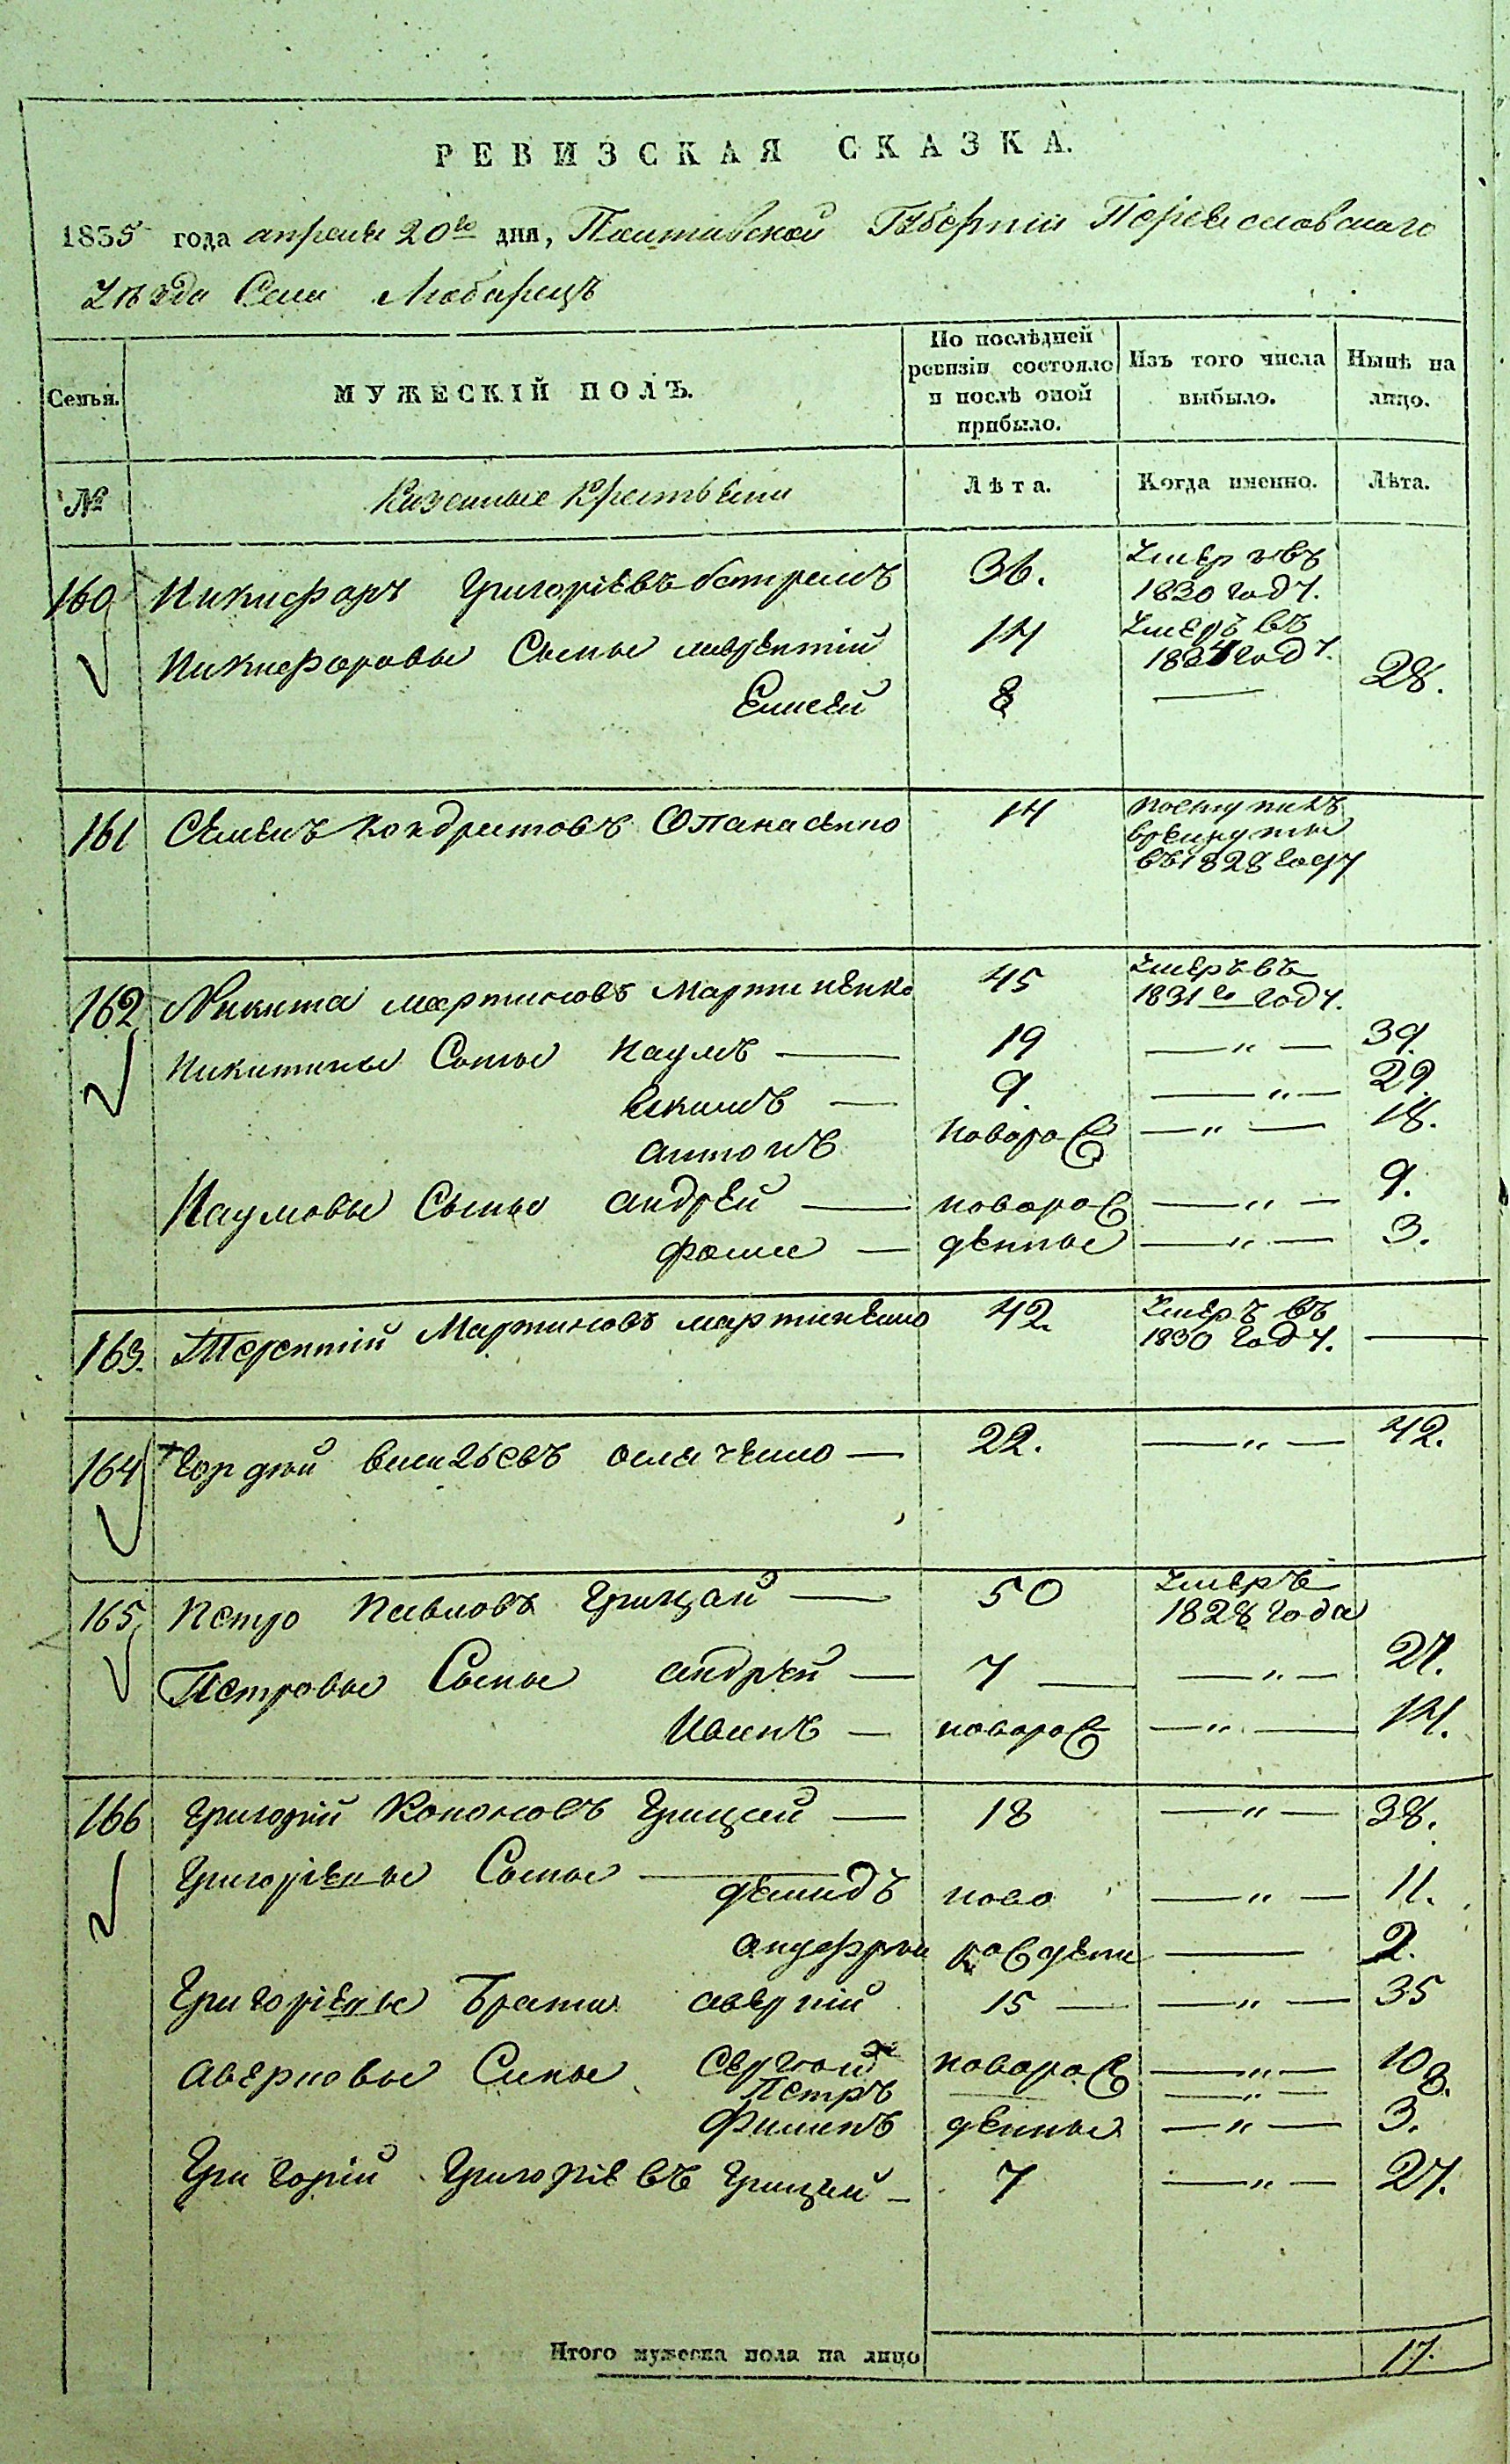 РЕВИЗСКАЯ СКАЗКА.
1835 года апреля 20го дня, Полтавской Губернии Переяславского
Уезда Села Любарецъ
Семьи.
МУЖЕСКІЙ ПОЛЪ.
По послѣдней ревизіи состояло и послѣ оной прибыло.
Изъ того числа выбыло.
Нынѣ на лицо.
№
Казенные Крестьяни
Лѣта.
Когда именно.
Лѣта.
160 Никифоръ Григорiевъ 36. Умеръ въ
1830 году.
Никифоровы Сыны лаврентiй 14 Умеръ въ
1824 году.
Елисей 8 — 28.
161 Семенъ Кондратовъ Опанасенко 14 поступилъ
врекруты
въ 1828 году
162 Никита мартиновъ Мартиненко 45 Умеръ въ
1831го году.
Никитины Сыны Наумъ — 19 — „ — 39.
Екимъ — 9. — „ — 29.
антонъ новорож — „ — 18.
Наумовы Сыны андрей — новорож — „ — 9.
фома — денные — „ — 3.
163. Терентiй Мартиновъ мартиненко 42. Умеръ въ
1830 году. —
164 Гордiй — 22. — „ — 42.
165 Петро Павловъ Грицай — 50 Умеръ
1828 года
Петровы Сыны андрей — 7 — — „ — 27.
Иванъ — новорож — „ — 14.
166 Григорiй Кононовъ Грицай — 18 — „ — 38.
Григорiевы Сыны — демидъ ново — „ — 11.
рожденн — 2.
Григорiевы Брати аверкiй 15 — — „ — 35
аверковы Сины Сергiй новорож — „ — 10
Петръ — „ — 8.
Филипъ денные — „ — 3.
Григорiй Григорiевъ Грицай — 7 — „ — 27.
Итого мужеска пола на лицо 17.